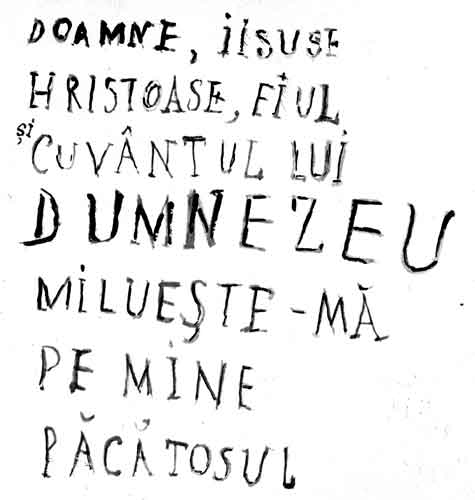 DOAMNE, IISUSE
HRISTOASE, FIUL
și CUVÂNTUL LUI
DUMNEZEU
MILUEȘTE-MĂ
PE MINE
PĂCĂTOSUL